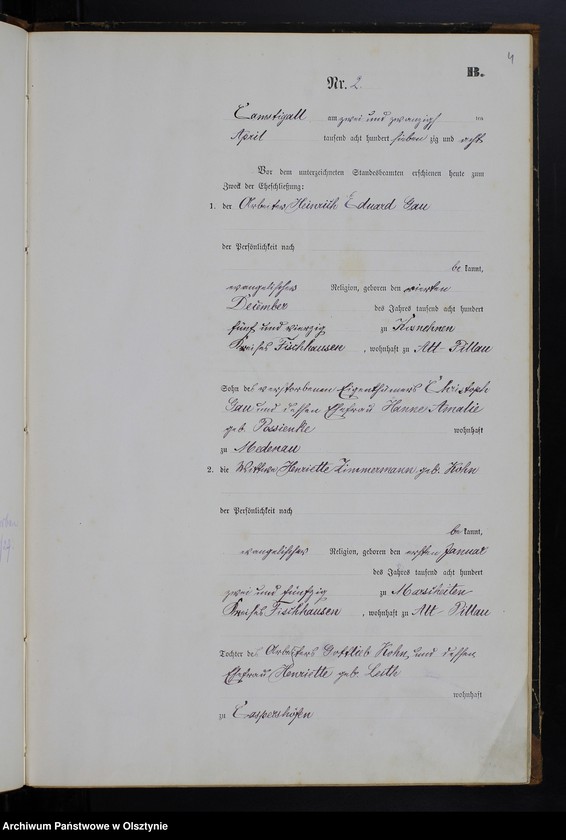 4
B.
Nr. 2.
Camstigall am zwei und zwanzigsten
April tausend acht hundert sieben zig und acht
Vor dem unterzeichneten Standesbeamten erschienen heute zum
Zweck der Eheschließung:
1. der Arbeiter Heinrich Eduard Gau
der Persönlichkeit nach
be kannt,
evangelischer Religion, geboren den vierten
December des Jahres tausend acht hundert
fünf und vierzig zu
Kreises Fischhausen, wohnhaft zu Alt-Pillau
Sohn des verstorbenen Eigenthümers Christoph
Gau und dessen Ehefrau Hanne Amalie
geb. Possienke wohnhaft
zu Medenau
2. die Wittwe Henriette Zimmermann geb. Kohn
der Persönlichkeit nach
be kannt,
evangelischer Religion, geboren den ersten Januar
des Jahres tausend acht hundert
zwei und fünfzig zu Marscheiten
Kreises Fischhausen, wohnhaft zu Alt-Pillau
Tochter des Arbeiters Gottlieb Kohn, und dessen
Ehefrau Henriette geb. Leith
wohnhaft
zu Caspershöfen
Archiwum Państwowe w Olsztynie